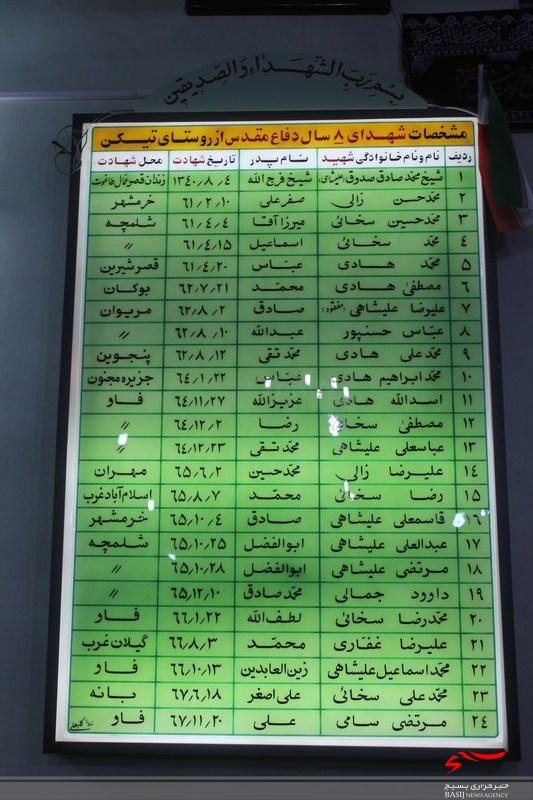 بسم رب الشهداء و الصدیقین
مشخصات شهدای ۸ سال دفاع مقدس از روستای تیکن
ردیف نام و نام خانوادگی شهید نام پدر تاریخ شهادت محل شهادت
۱ شیخ محمد صادق صدوق (علیشاهی) شیخ فرج الله ۱۳۴۰٫۸٫۴ زندان قصر
۲ محمد حسن زالی صفر علی ۶۱٫۲٫۱۰ خرمشهر
۳ محمد حسین سخائی میرزا آقا ۶۱٫۴٫۴ شلمچه
۴ محمد سخائی اسماعیل ۶۱٫۴٫۱۵ //
۵ محمد هادی عباس ۶۱٫۴٫۲۰ قصر شیرین
۶ مصطفی هادی محمد ۶۲٫۷٫۲۱ بوکان
۷ علیرضا علیشاهی (مفقود) صادق ۶۲٫۸٫۲ مریوان
۸ عباس حسنپور عبدالله ۶۲٫۸٫۱۰ //
۹ محمد علی هادی محمد تقی ۶۲٫۸٫۱۲ پنجوین
۱۰ محمد ابراهیم هادی عباس ۶۴٫۱٫۲۲ جزیره مجنون
۱۱ اسدالله هادی عزیزالله ۶۴٫۱۱٫۲۷ فاو
۱۲ مصطفی سخائی رضا ۶۴٫۱۲٫۲ //
۱۳ عباسعلی علیشاهی محمد تقی ۶۴٫۱۲٫۲۳ //
۱۴ علیرضا زالی محمد حسین ۶۵٫۶٫۲ مهران
۱۵ رضا سخائی محمد ۶۵٫۸٫۷ اسلام آباد غرب
۱۶ قاسمعلی علیشاهی صادق ۶۵٫۱۰٫۴ خرمشهر
۱۷ عبدالعلی علیشاهی ابوالفضل ۶۵٫۱۰٫۲۵ شلمچه
۱۸ مرتضی علیشاهی ابوالفضل ۶۵٫۱۰٫۲۸ //
۱۹ داوود جمالی محمد صادق ۶۵٫۱۲٫۱۰ //
۲۰ محمد رضا سخائی لطف الله ۶۶٫۱٫۲۲ فاو
۲۱ علیرضا غفاری محمد ۶۶٫۸٫۳ گیلان غرب
۲۲ محمد اسماعیل علیشاهی زین العابدین ۶۶٫۱۰٫۱۳ فاو
۲۳ محمد علی سخائی علی اصغر ۶۷٫۶٫۱۸ بانه
۲۴ مرتضی سامی علی ۶۷٫۱۱٫۲۰ فاو
خبرگزاری بسیج
BASIJ NEWS AGENCY